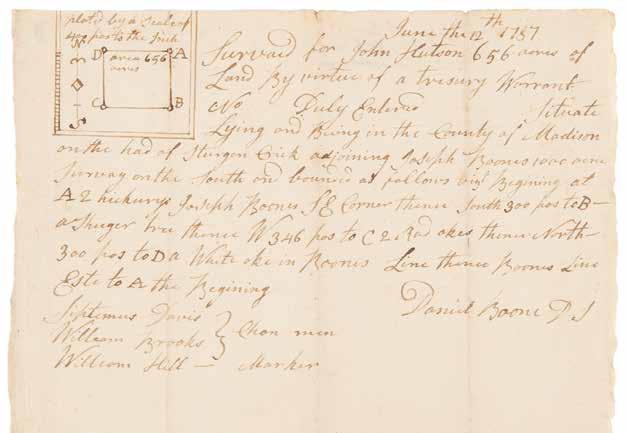 plated by a Scale of
400 pos to the Inch
D A
area 656
acres
C B
N
S
June the 12th 1787
Survaid for John Hutson 656 acres of
Land By virtue of a tresury Warrant
No Duly Entered Situate
Lying and Being in the County of Madison
on the had of Sturgon Crick adjoining Joseph Boones 1000 acre
Survay on the South and bounded as follows viz Begining at
A 2 hickurys Joseph Boones S E Corner thence South 300 pos to B
a Shuger tree thence W 346 pos to C 2 Rad okes thence North
300 pos to D a White oke in Boones Line thence Boones Line
Este to A the Begining
Daniel Boone D S
Septemus Davis
William Brooks } Chan men
William Hill — Marker